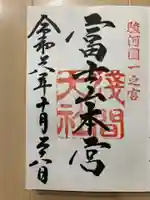 駿河國一之宮
富士山本宮
淺間大社
令和六年十月二六日